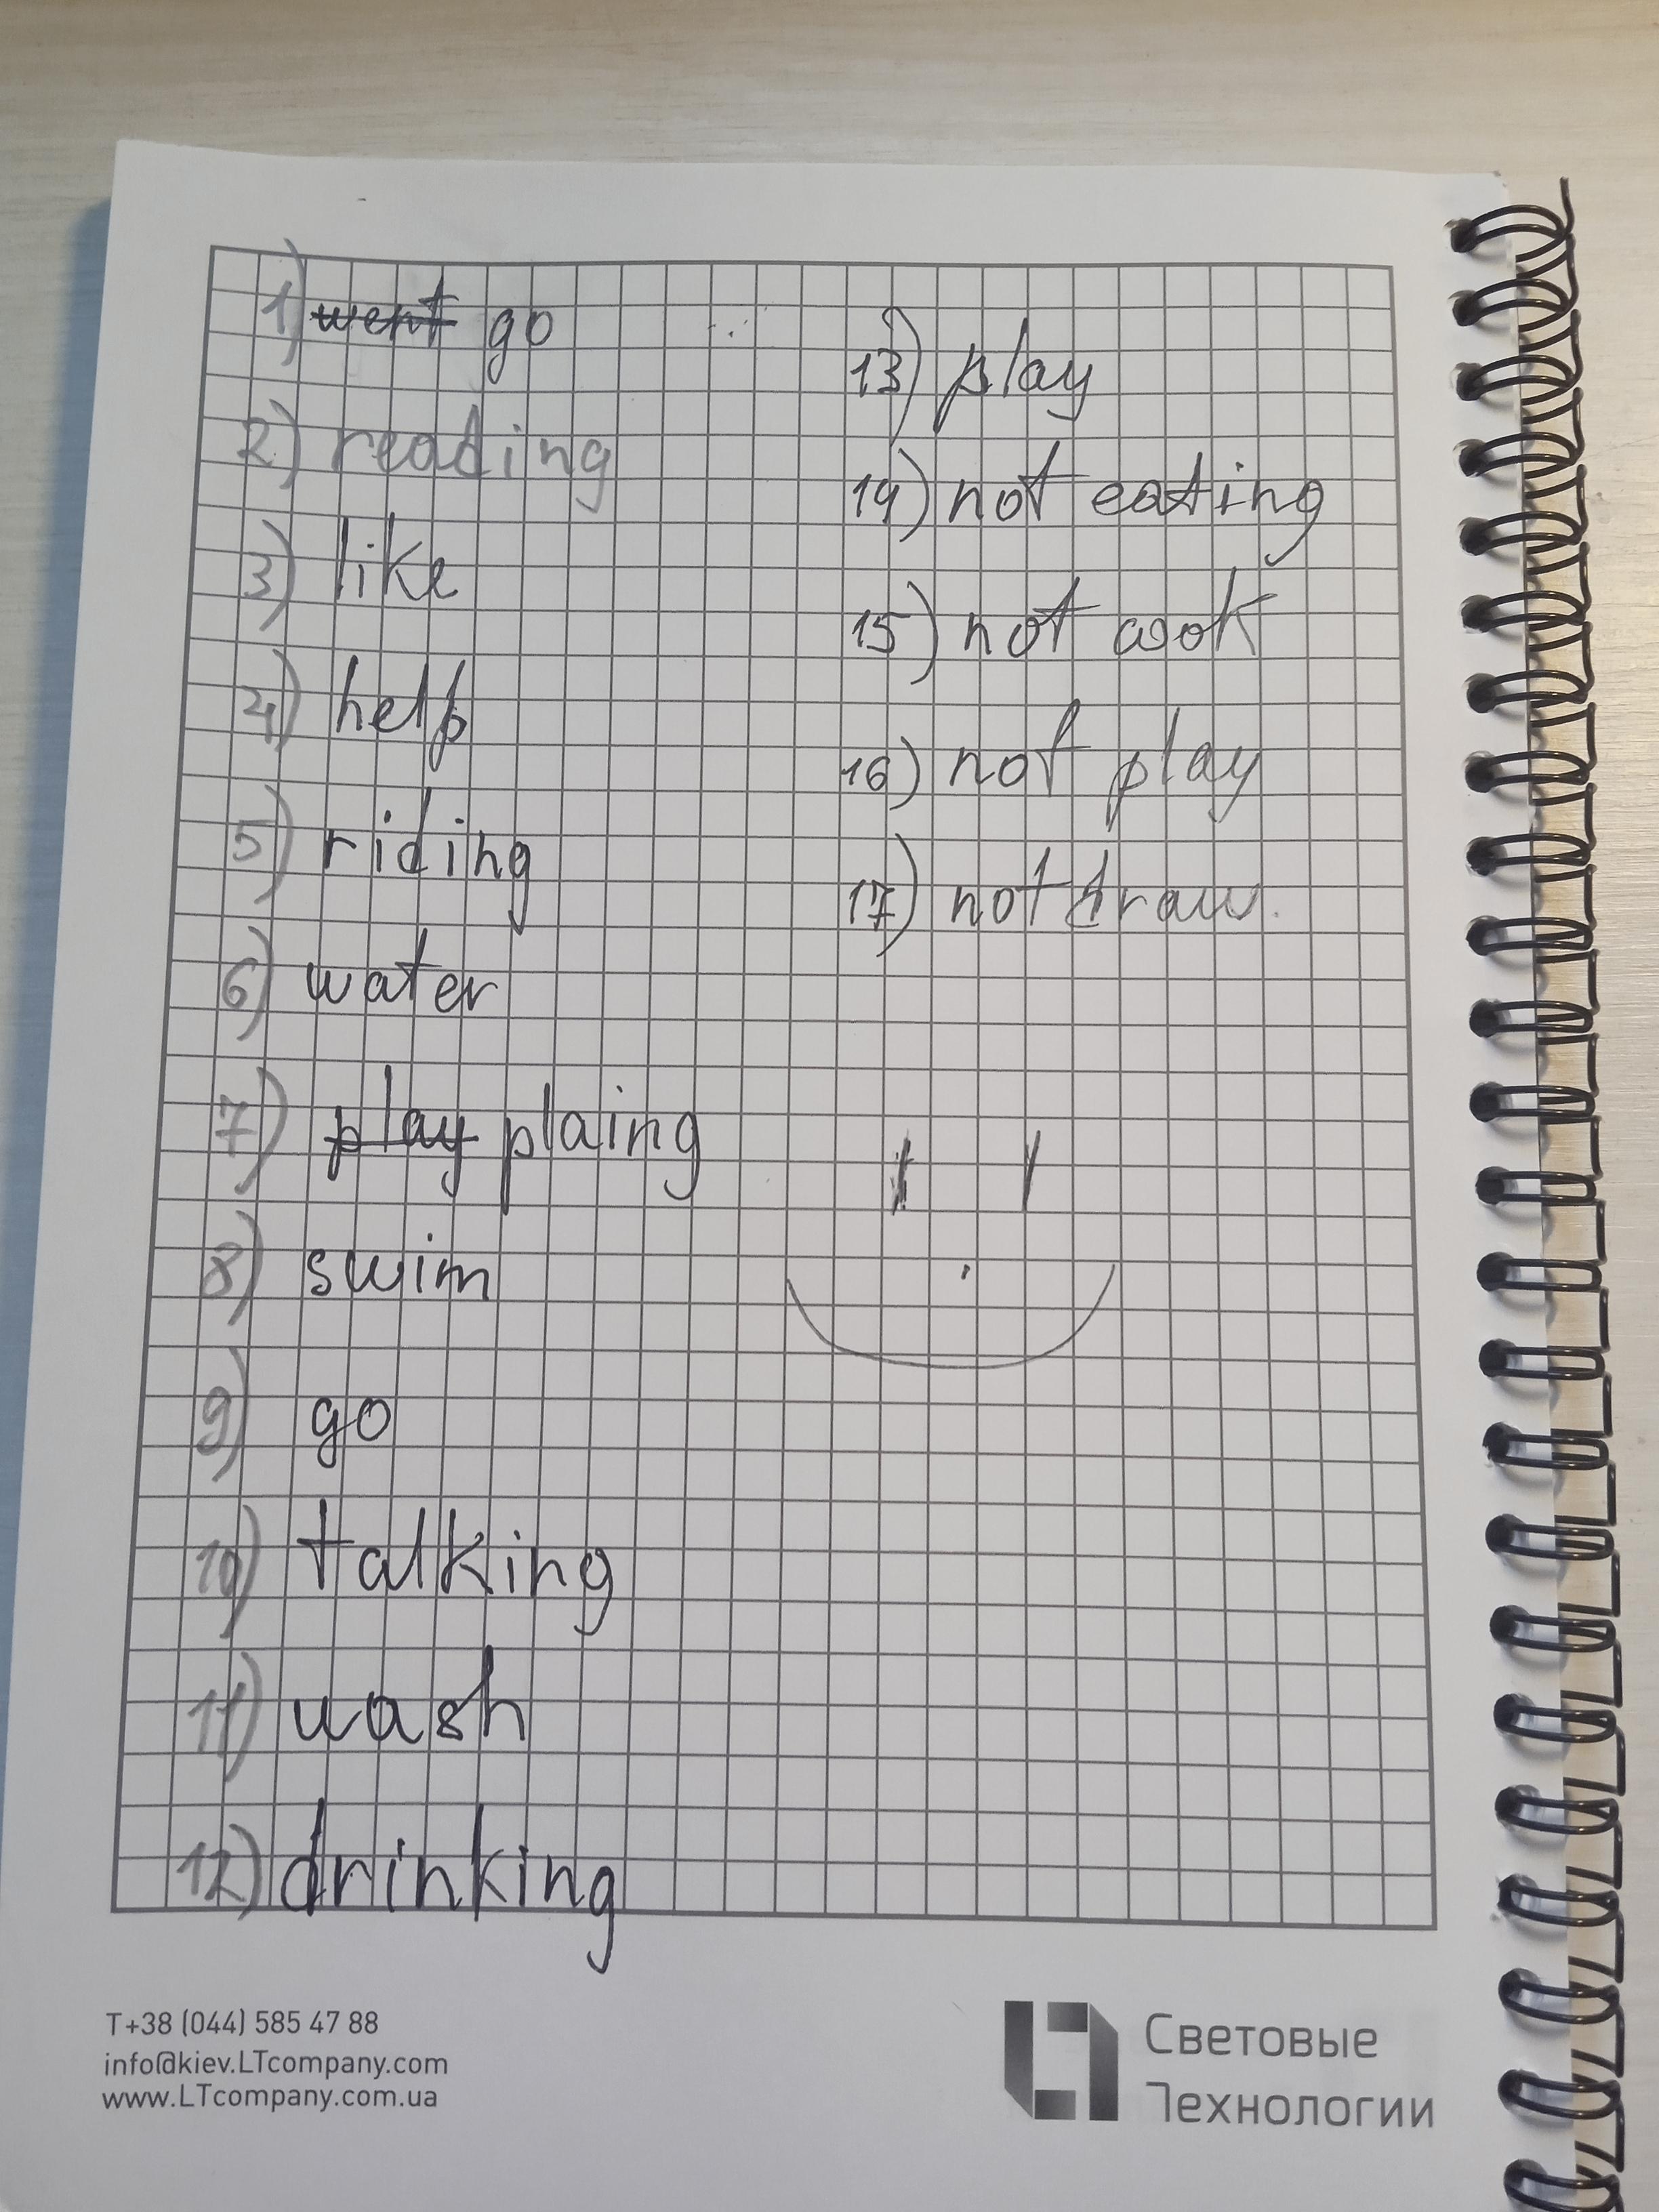 1) went go
2) reading
3) like
4) help
5) riding
6) water
7) play plaing
8) swim
9) go
10) talking
11) wash
12) drinking
13) play
14) not eating
15) not cook
16) not play
17) not draw.
T+38 (044) 585 47 88
info@kiev.LTcompany.com
www.LTcompany.com.ua
Световые
Технологии